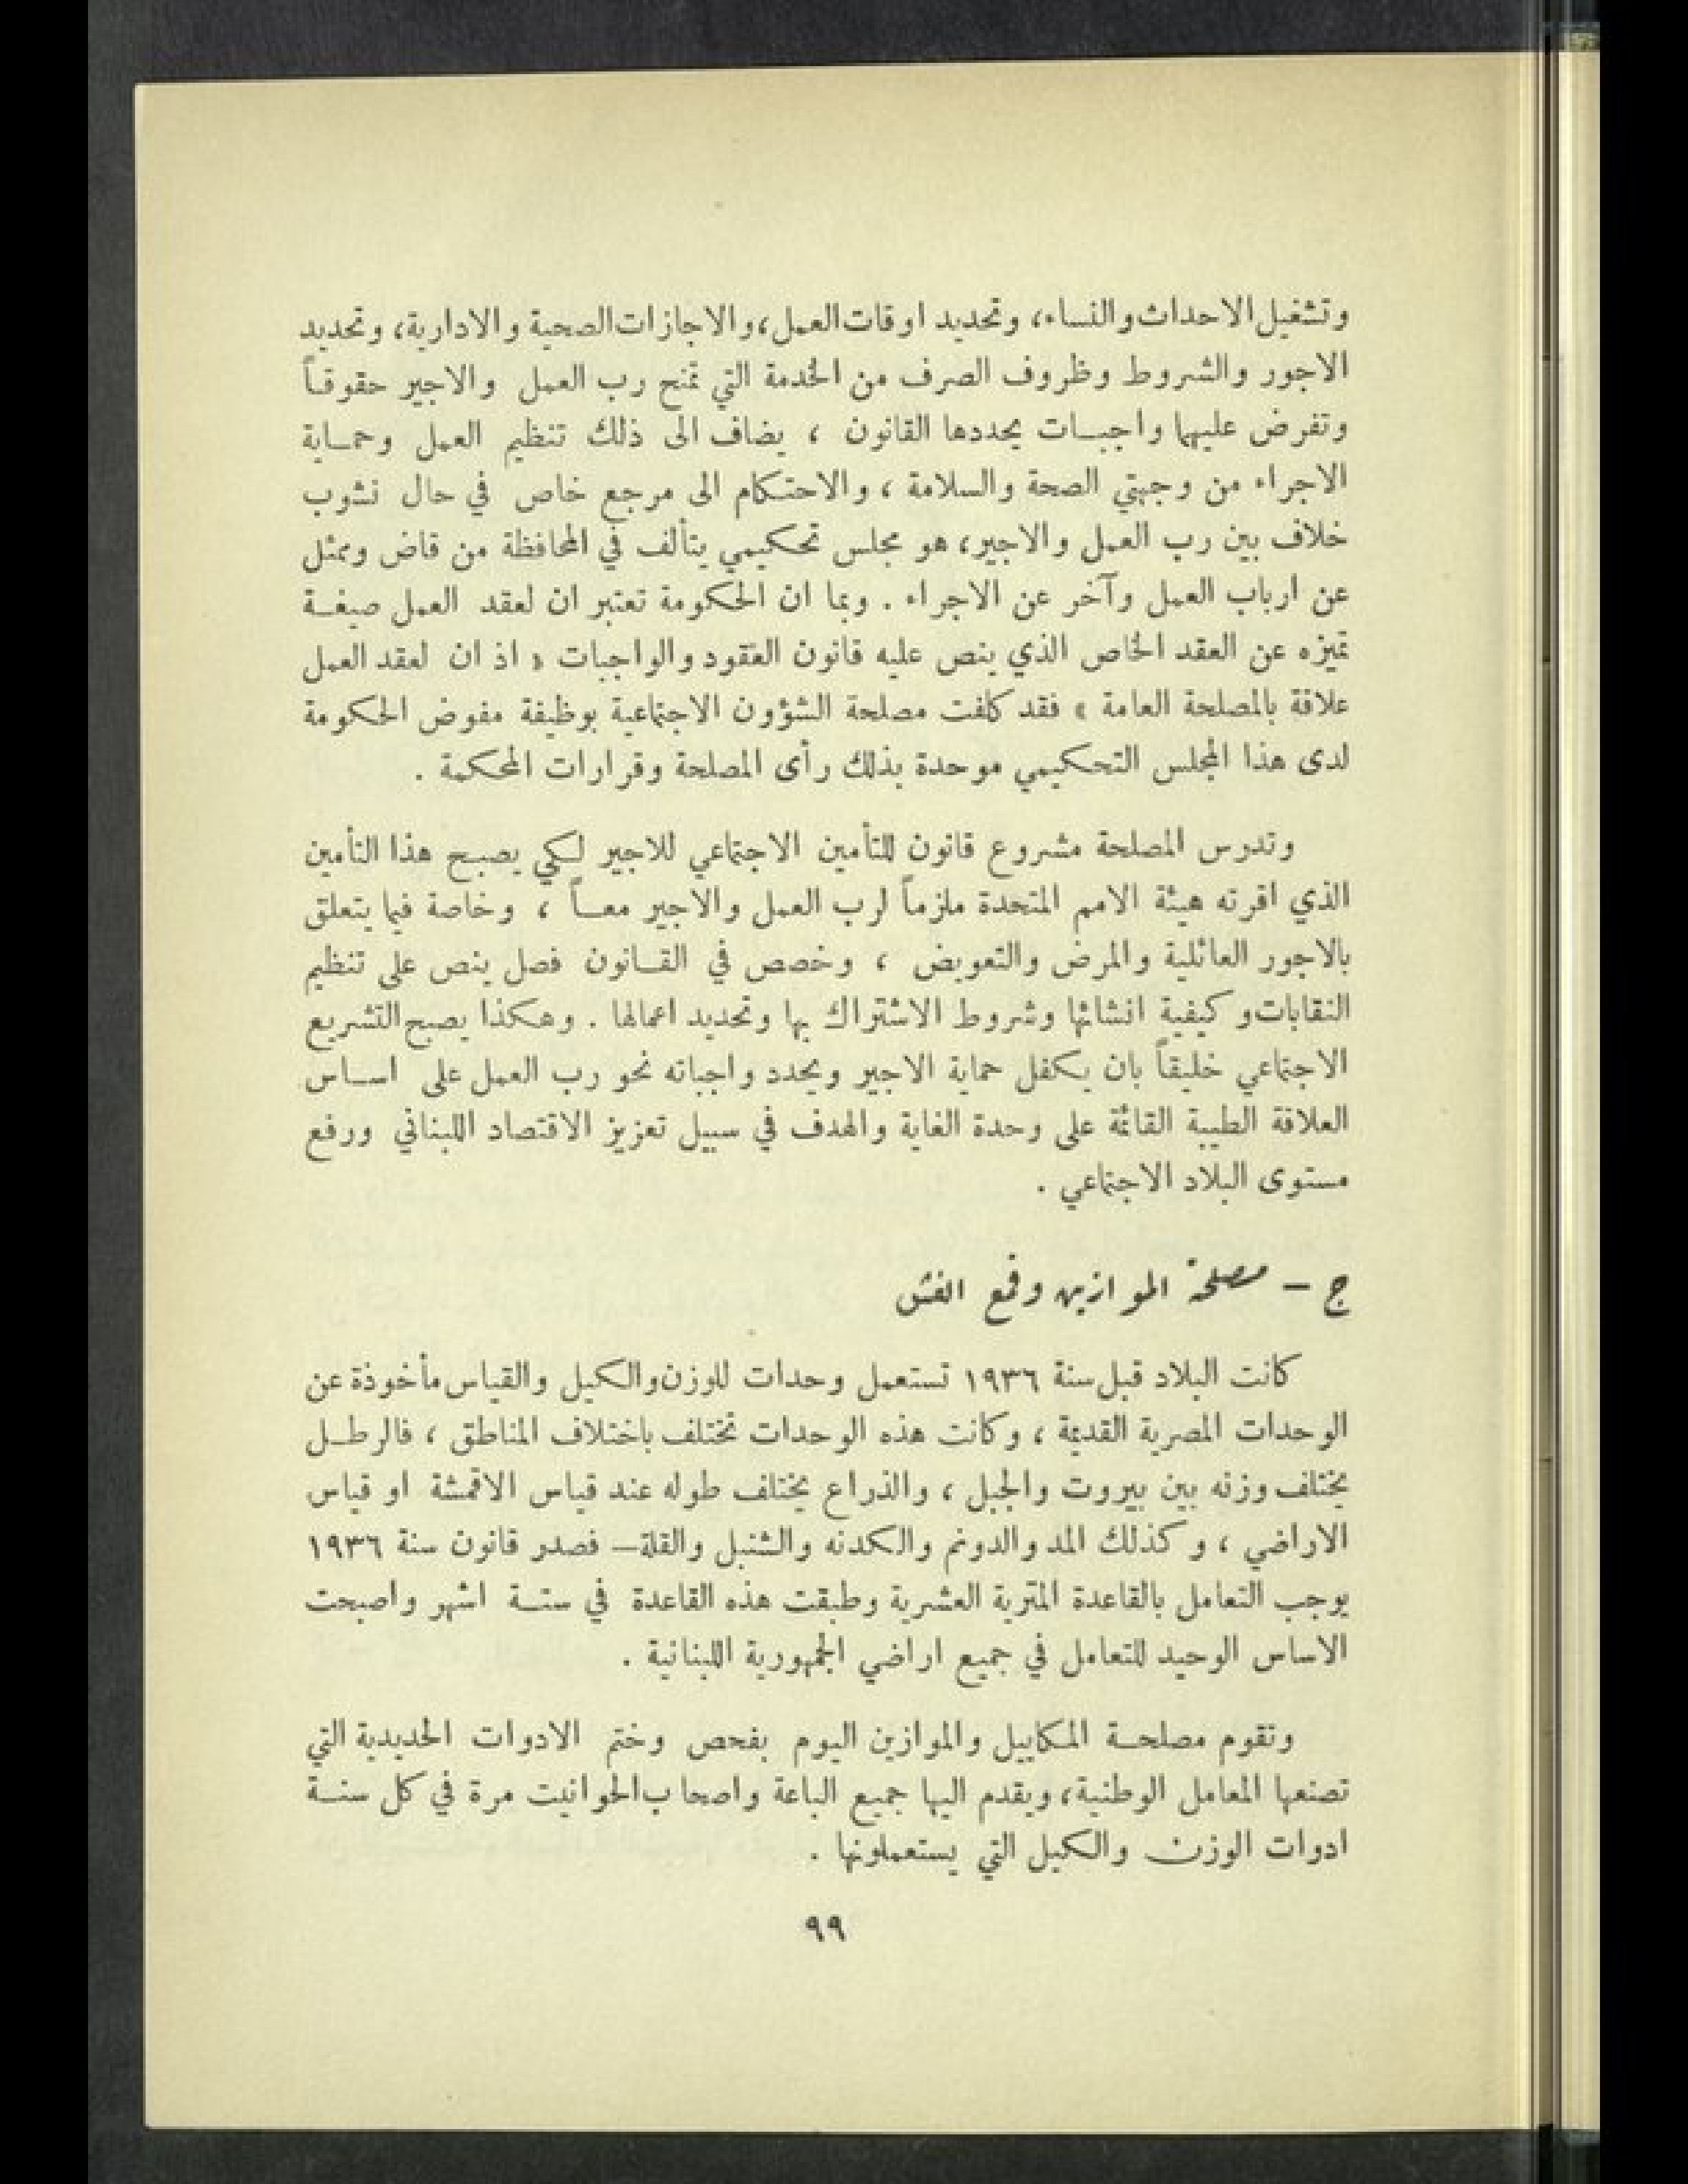 وتشغيل الاحداث والنساء، وتحديد اوقات العمل، والاجازات الصحية والادارية، وتحديد
الاجور والشروط وظروف الصرف من الخدمة التي تمنح رب العمل والاجير حقوقـاً
وتفرض عليهما واجبـات يحددها القانون ، يضاف الى ذلك تنظيم العمل وحمـاية
الاجراء من وجهتي الصحة والسلامة ، والاحتكام الى مرجع خاص في حال نشوب
خلاف بين رب العمل والاجير، هو مجلس تحكيمي يتألف في المحافظة من قاض وممثل
عن ارباب العمل وآخر عن الاجراء . وبما ان الحكومة تعتبر ان لعقد العمل صيغـة
تميزه عن العقد الخاص الذي ينص عليه قانون العقود والواجبات « اذ ان لعقد العمل
علاقة بالمصلحة العامة » فقد كلفت مصلحة الشؤون الاجتماعية بوظيفة مفوض الحكومة
لدى هذا المجلس التحكيمي موحدة بذلك رأى المصلحة وقرارات المحكمة .
وتدرس المصلحة مشروع قانون للتأمين الاجتماعي للاجير لكي يصبح هذا التأمين
الذي اقرته هيئة الامم المتحدة ملزماً لرب العمل والاجير معـاً ، وخاصة فيما يتعلق
بالاجور العائلية والمرض والتعويض ، وخصص في القـانون فصل ينص على تنظيم
النقابات وكيفية انشائها وشروط الاشتراك بها وتحديد اعمالها . وهكذا يصبح التشريع
الاجتماعي خليقاً بان يكفل حماية الاجير ويحدد واجباته نحو رب العمل على اسـاس
العلاقة الطيبة القائمة على وحدة الغاية والهدف في سبيل تعزيز الاقتصاد اللبناني ورفع
مستوى البلاد الاجتماعي .
ج – مصلحة الموازين وقمع الغش
كانت البلاد قبل سنة ١٩٣٦ تستعمل وحدات للوزن والكيل والقياس مأخوذة عن
الوحدات المصرية القديمة ، وكانت هذه الوحدات تختلف باختلاف المناطق ، فالرطـل
يختلف وزنه بين بيروت والجبل ، والذراع يختلف طوله عند قياس الاقمشة او قياس
الاراضي ، وكذلك المد والدونم والكدنه والشنبل والقلة– فصدر قانون سنة ١٩٣٦
يوجب التعامل بالقاعدة المترية العشرية وطبقت هذه القاعدة في ستـة اشهر واصبحت
الاساس الوحيد للتعامل في جميع اراضي الجمهورية اللبنانية .
وتقوم مصلحـة المكاييل والموازين اليوم بفحص وختم الادوات الحديدية التي
تصنعها المعامل الوطنية، ويقدم اليها جميع الباعة واصحاب الحوانيت مرة في كل سنـة
ادوات الوزن والكيل التي يستعملونها .
٩٩